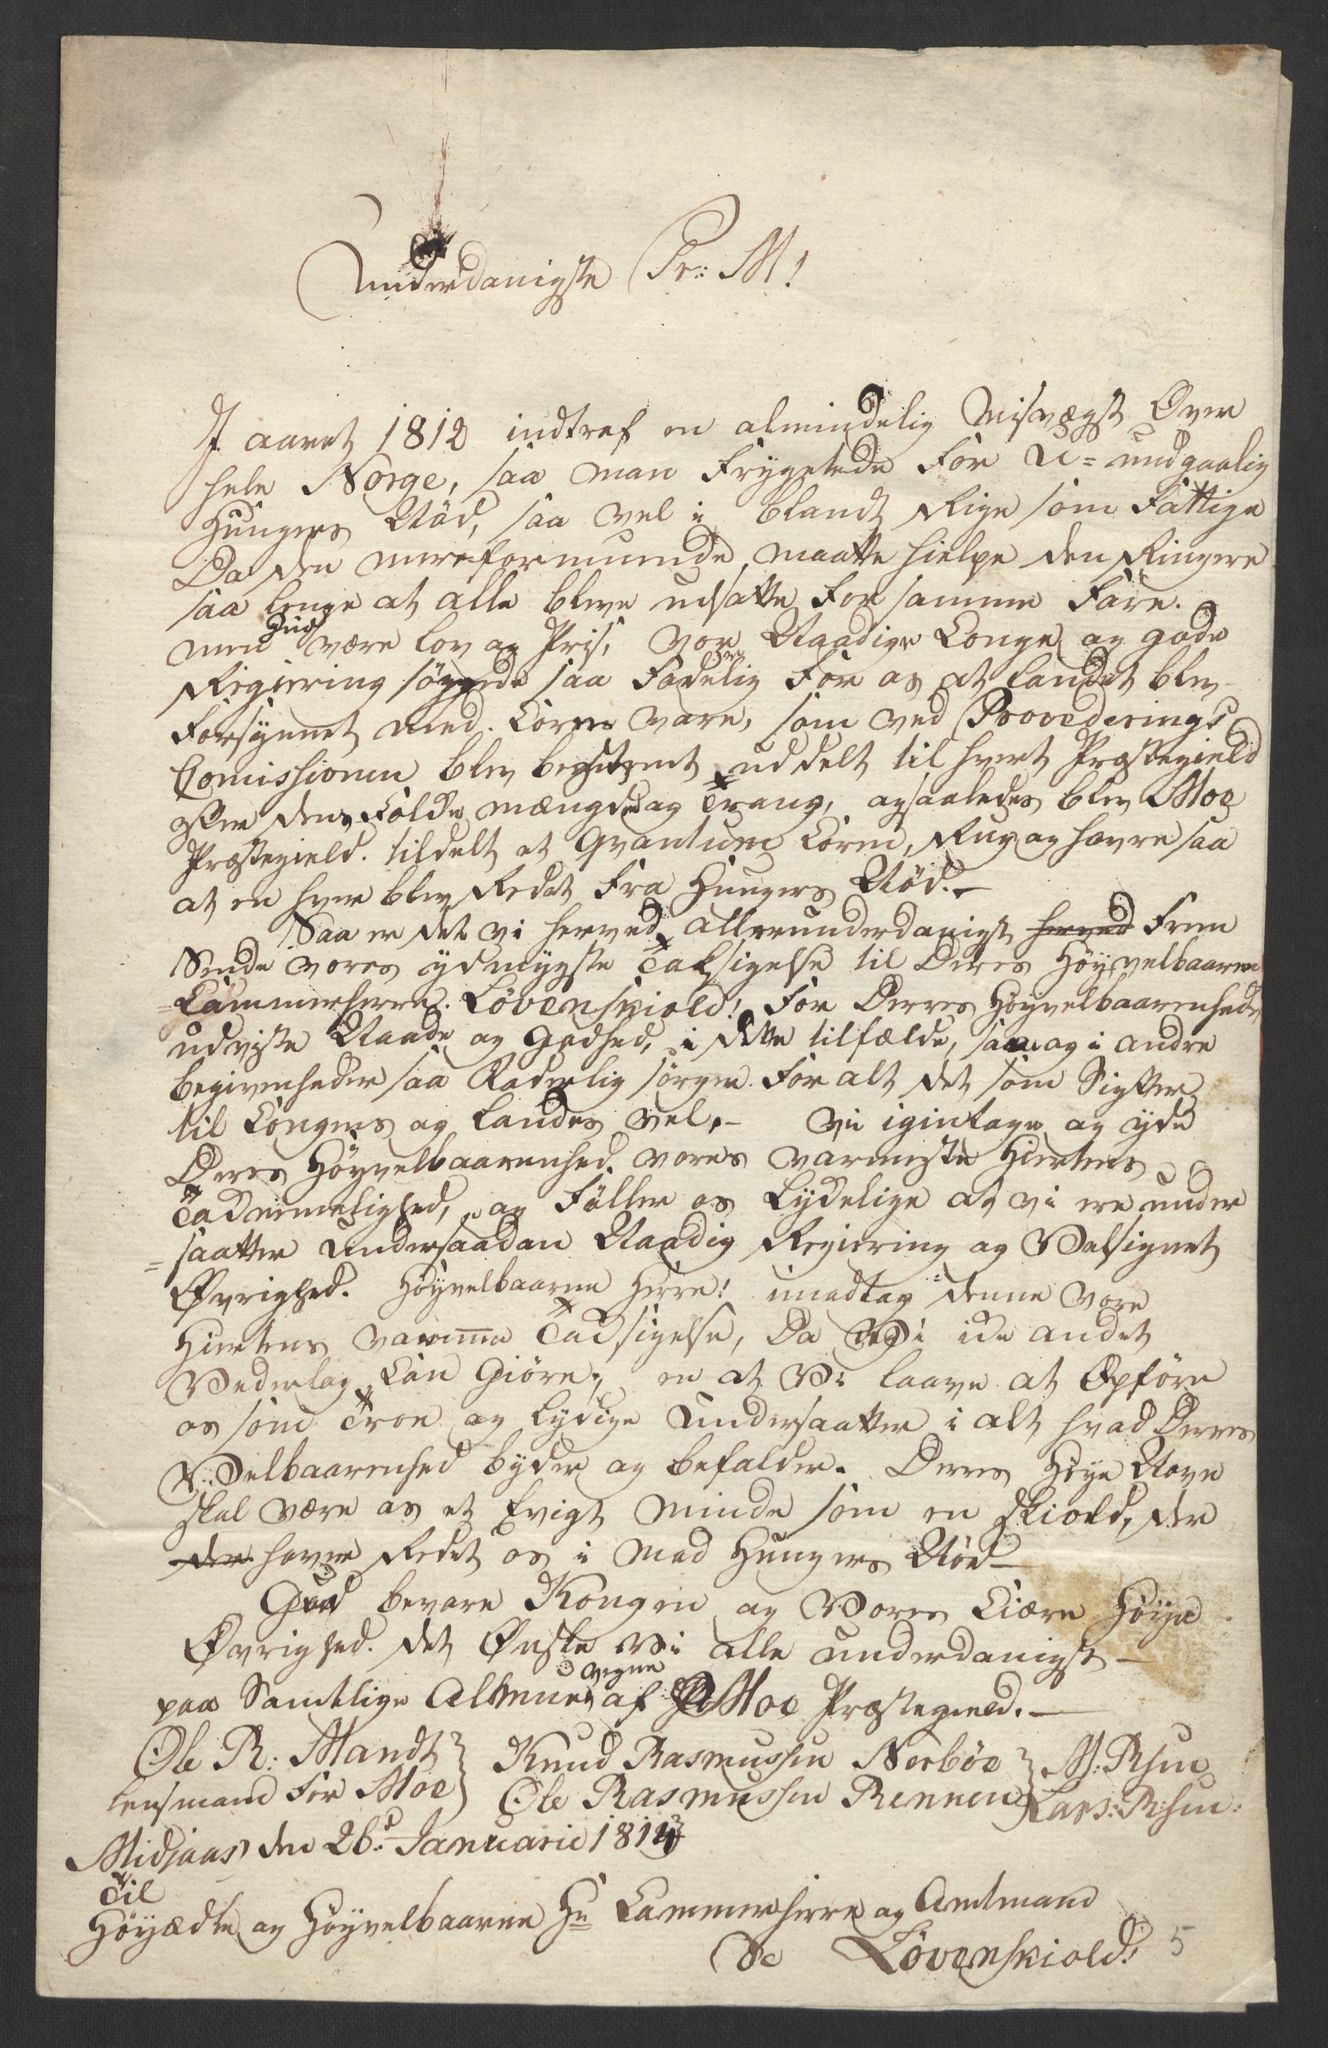 Underdanigste Pr: M!
I aaret 1812 indtraf en almindelig Misvægst Over
hele Norge, saa man Frygtede For U=undgaalig
Hungers Nöd, saa vel i blandt Rige som Fattige
Da den mereformuende, maatte hielpe den Ringere
saa lenge at alle bleve udsatte For samme Fare.
men Gud være lov og Priis, vor Naadige Konge og gode
Regiering söggede saa Faderlig For os at Landet blev
Forsÿnet med Korne vare, som ved Provederings
Comissionen blev bestemt uddelt til hvert Præstegield
Efter dens Folke mængde og Trang, ogsaaledes blev Moe
Præstegield tildelt et Qvantum Korn, Rug og havre saa
at en hver blev Redet Fra Hungers Nöd.
Saa er det vi herved allerunderdanigst herved Frem
Sende vores ydmygste Taksigelse til Deres Höyvelbaarne
Kammerherre Lövenskiold! For Deres Höyvelbaarenheds
udviste Naade og Godhed, i dette tilfælde, saa og i andre
begivenheder saa Faderlig sörger For alt det som Sigter
til Kongens og Landes vel, - vi igientage og yde
Deres Höyvelbaarenhed vores varmeste Hiertens
Taknemelighed, og Föller os Lydelige at vi ere under
=saatter under saadan Naadig Regiering og Velsignet
Øvrighed. Höyvelbaarne Herre! imodtag denne vore
Hiertens varme Taksigelse, Da Vi ike andet
Vederlag Kan Giöre, en at Vi laave at Opföre
os som Troe og lydige Undersaatter i alt hvad Deres
Velbaarenhed byder og befalder. Deres Höye Navn
skal være os et Evigt minde som en Skiold, der
der haver Redet os i mod Hungers Nöd
Gud bevare Kongen og Vores Kiære Höye
Øvrighed. det Ønske Vi alle underdanigst
paa Samtlige Almues vegne af Moe Præstegield.
Ole R: Mandt Knud Rasmussen Nerböe M: RSen
lensmand For Moe Ole Rasmussen Rennen Lars: R:sen:
Midjaas den 26d Januarie 1813
Til
Höyædle og Höyvelbaarne Hr Kammerherre og Amtmand
De Lövenskiold! 5